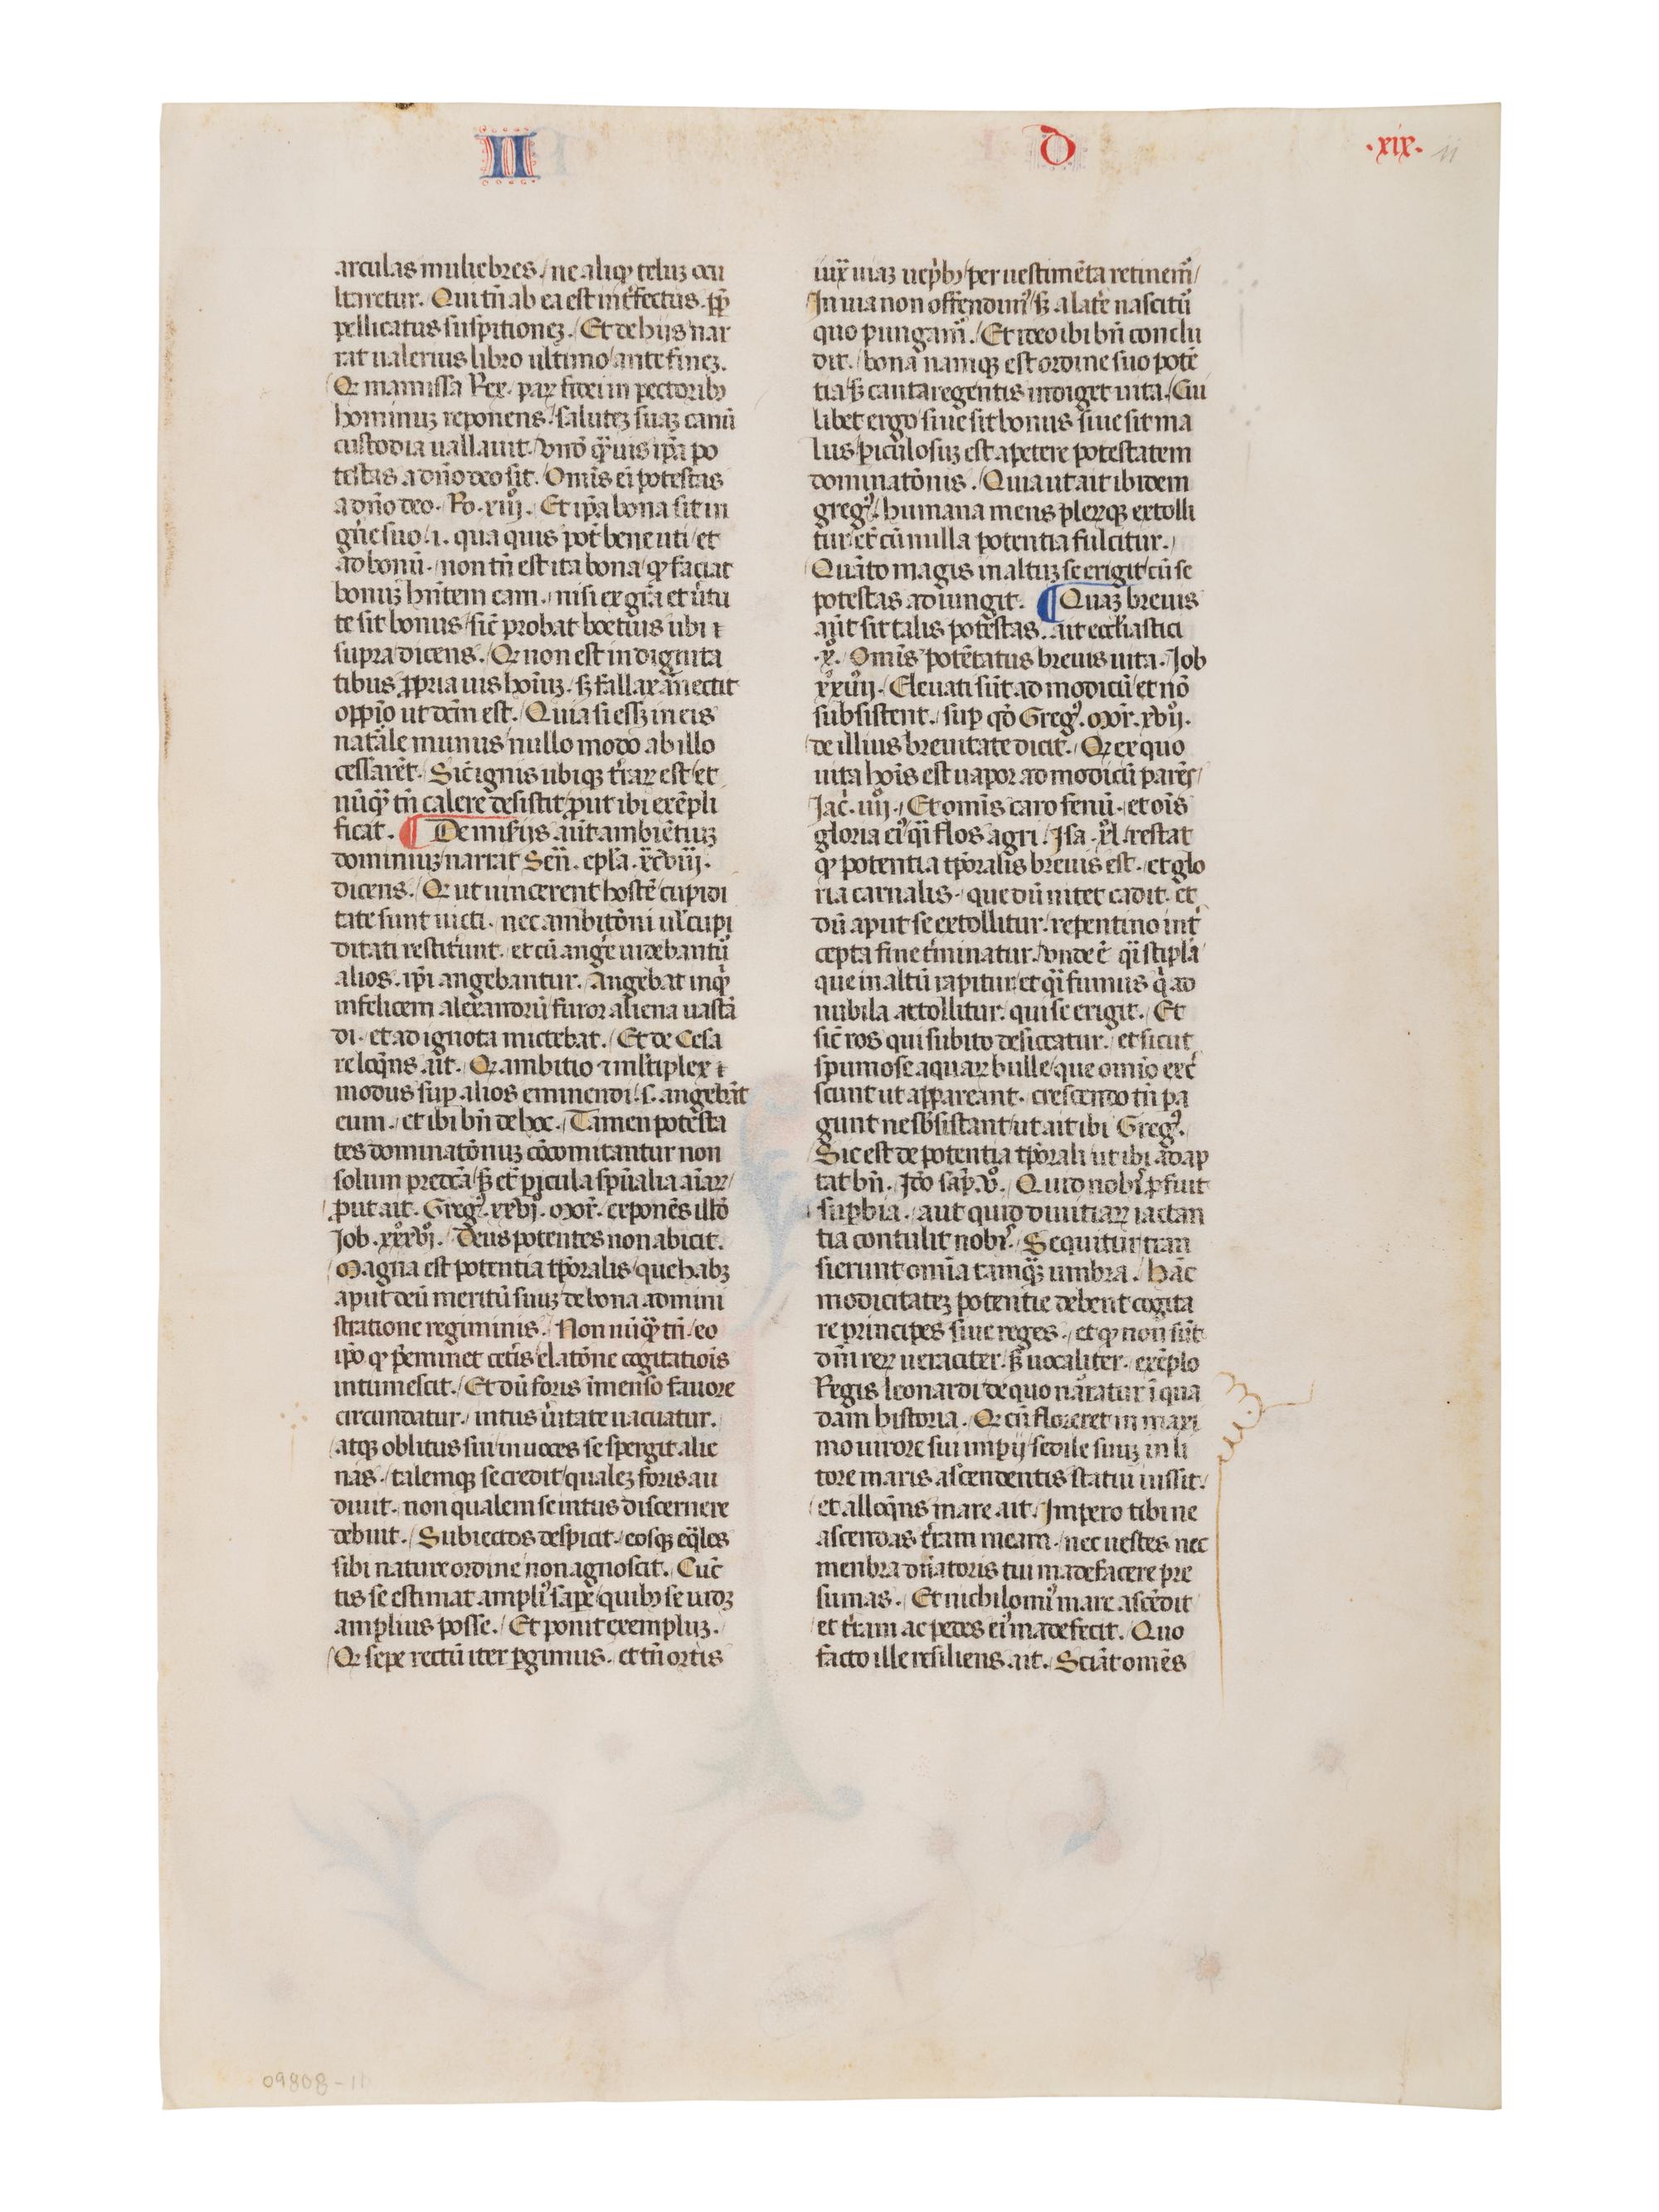 II
D
.xix. 11
arculas muliebres / ne aliqͦ teluꝫ ocu
ltaretur. Qui tn̄ ab ea est int̄fectus. ꝓp̄
pellicatus suspitioneꝫ. / Et de hijs nar
rat ualerius libro ultimo / ante fineꝫ.
Ꝙ manissa Rex. paꝝ fidei in pectoribꝫ
hominuꝫ reponens. / saluteꝫ suaꝫ canū
custodia uallauit. / Vn̄ quāuis ip̄a po
testas a dn̄o deo sit. / Om̄is ei potestas
a dn̄o deo. Ro. xiij. / Et ip̄a bona sit in
gn̄e suo .i. qua quis pōt bene uti / et
ad bonū. / non tn̄ est ita bona / ꝙ faciat
bonuꝫ hn̄tem eam. / nisi ex grā et ūtu
te sit bonus / sic̄ probat boetius ubi ⁊
supra dicens. / Ꝙ non est in dignita
tibus ꝓpria uis hoīuꝫ. / sꝫ fallax ānectit
opp̄io ut dem̄ est. / Quia si essꝫ in eis
natāle munus / nullo modo ab illo
cessarēt. / Sic̄ ignis ubiqꝫ t̄raꝝ est / et
nūqā tn̄ calere desistit / ꝓut ibi exēpli
ficat. ¶ De misijs aūt ambiētiuꝫ
dominiuꝫ / narrat Seň. epl̄a .xcviij.
dicens. / Ꝙ ut uincerent hostē / cupidi
tate sunt uicti. / nec ambitōni ul̄ cupi
ditati restitūnt. / et cū ange uidebantū
alios. / ip̄i angebantur. / Angebat inqͥ
infelicem alexandrū / furor aliena uastā
di. / et ad ignota mictebat. / Et de Cesa
re loqn̄s aīt. / Ꝙ ambitio ⁊ ml̄tiplex ⁊
modus suꝑ alios eminendi .s. angebāt
eum. / et ibi bn̄ de hoc. / Tamen potēsta
tes dominatōnuꝫ cōcomitantur non
solum predcā / sꝫ et̄ ꝑicula spūalia aīaꝝ /
ꝓut ait. Gregꝰ. xxvi. Mor̄. exponēs illō
Job. xxxvi. / Deus potentes non abicit.
Magna est potentia tꝑoralis / que habꝫ
aput deū meritū suuꝫ / de bona admini
stratione regiminis. / Non nūqā tn̄ / eo
ip̄o ꝙ p̄eminet cet̄is / elatōne cogitatiois
intumescit. / Et dū foris īmenso fauore
circundatur. / intus ūitate uacuatur. /
atqꝫ oblitus sui / in uoces se spergit alie
nas. / talemqꝫ se credit / qualeꝫ foris au
diuit. / non qualem se intus discernere
debuit. / Subiectos despicit. / eosqꝫ eqāles
sibi nature ordine non agnoscit. / Cūc
tis se estimat ampliꝰ sapē / quibꝫ se uidꝫ
amplius posse. / Et ponit exempluꝫ. /
Ꝙ sepe rectū iter ꝑgimus. / et tn̄ ortis
iux̄ uiaꝫ uep̄bꝫ / per uestimēta retinemꝰ /
In uia non offendimꝰ / sꝫ a late nascitū
quo pungamꝰ. / Et ideo ibi bn̄ conclu
dit. / bona namqꝫ est ordine suo potē
tia / sꝫ cauta regentis indiget uita. / Cui
libet ergo siue sit bonus siue sit ma
lus / ꝑiculosuꝫ est apetere potestatem
dominatōnis. / Quia ut ait ibidem
gregꝰ. / humana mens pleꝝqꝫ extolli
tur / et̄ cū nulla potentia fulcitur. /
Quāto magis in altuꝫ se erigit / cū se
potestas adiungit. ¶ Quaꝫ breuis
aūt sit talis potēstas. / ait ecclīastici
.x. / Om̄is potētatus breuis uita. Job
xxiiij. / Eleuati sūt ad modicū / et nō
subsistent. / suꝑ qd̄ Gregꝰ. Mor̄. xvij.
de illius breuitate dicit. / Ꝙ ex quo
uita hoīs est uapor ad modicū parēs /
Jac̄. iiij. / Et om̄is caro fenū. / et oīs
gloria eiꝰ / q̄i flos agri / Isa. xl. / restat
ꝙ potentia tꝑoralis breuis est. / et glo
ria carnalis. / que dū nitet cadit. et
dū aput se extollitur. / repentino int̄
cepta fine t̄minatur. / Vnde ē q̄i stip̄la
que in altū rapitur / et q̄i fumus q̄ ad
nubila attollitur. / qui se erigit. / Et
sic̄ ros qui subito desiccatur. / et sicut
spumose aquaꝝ bulle / que omīo exc̄
scunt ut appareant. / crescendo tn̄ pa
gunt ne sb̄sistant / ut ait ibi Gregꝰ.
Sic est de potentia tꝑorali / ut ibi adap
tat bn̄. / Id̄o sap̄. v. / Quid nobꝭ ꝓfuit
suꝑbia. / aut quid diuitiaꝝ iactan
tia contulit nobꝭ. / Sequitur / tran
sierunt om̄ia tamqāꝫ umbra. / Hāc
modicitateꝫ potentie debent cogita
re principes siue reges. / et ꝙ non sūt
dn̄i reꝝ ueraciter. / sꝫ uocaliter. / exēplo
Regis leonardi de quo nāratur ī qua
dam historia. / Ꝙ cū floreret in maxi
mo uirore sui impij / sedile suuꝫ in li
tore maris ascendentis statui iussit. /
et alloqn̄s mare ait. / Impero tibi ne
ascendas t̄ram meam. / nec uestes nec
menbra dn̄atoris tui madefacere pre
sumas. / Et nichilomiꝰ mare ascēdit
et t̄ram ac pedes eiꝰ madefecit. / Quo
facto ille resiliens ait. / Sciāt omēs
09808-11